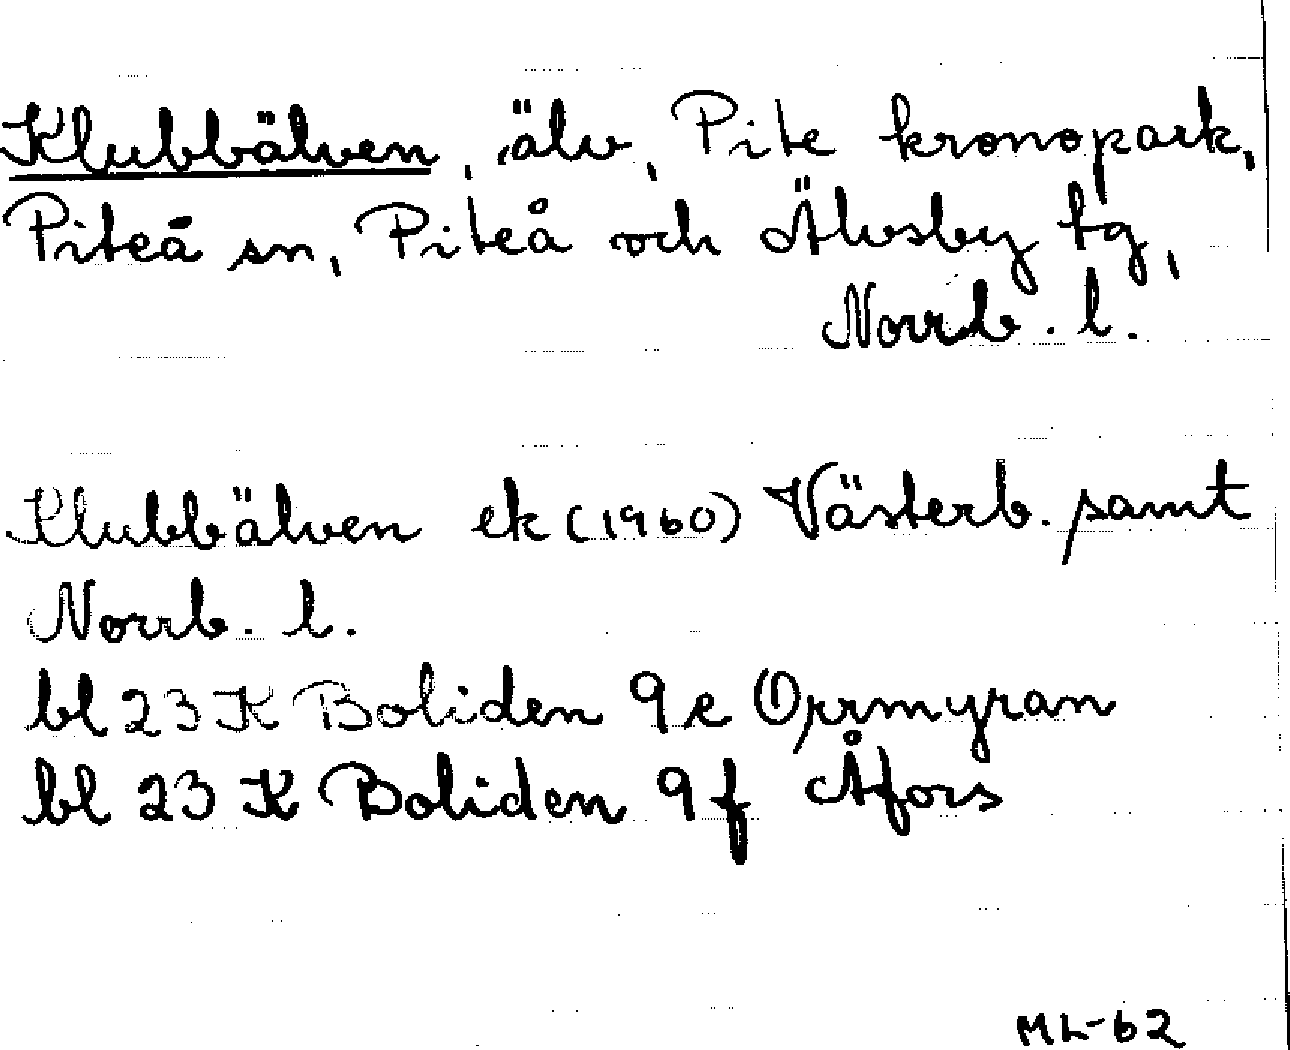 Klubbälven, älv, Pite kronopark,
Piteå sn, Piteå och Älvsby tg,
Norrb. l.
Klubbälven ek (1960) Västerb. samt
Norrb. l.
bl 23 K Boliden 9e Orrmyran
bl 23 K Boliden 9f Åfors
ML-62